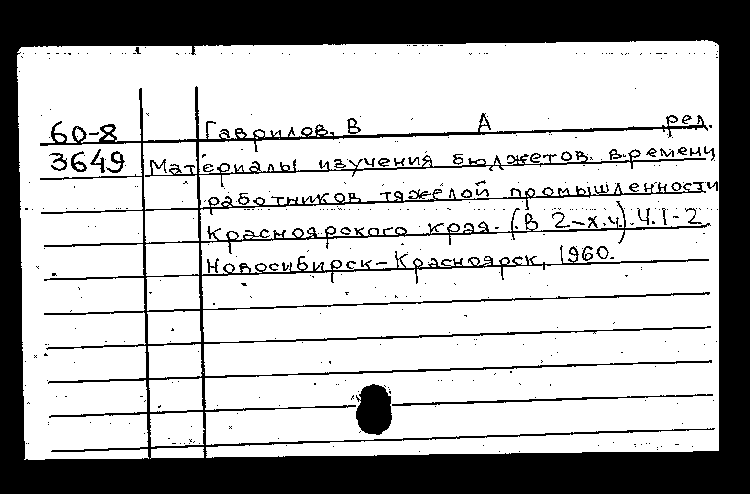 60-8 Гаврилов, В А ред.
3649 Материалы изучения бюджетов времени
работников тяжелой промышленности
Красноярского края. (В 2-х.ч). Ч.1-2
Новосибирск-Красноярск, 1960.